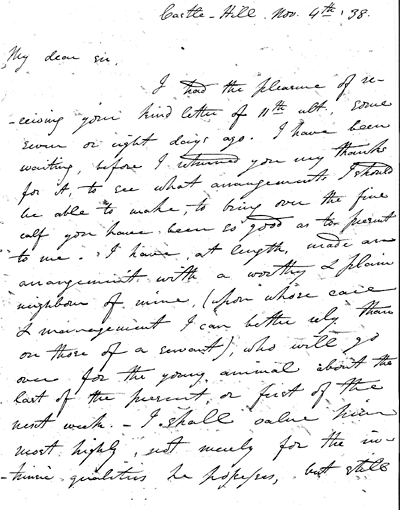 Castle-Hill. Nov. 4th. '38.
My dear sir,
I had the pleasure of re-
-ceiving your kind letter of 11th ult. some
seven or eight days ago. I have been
waiting, before I returned you my thanks
for it, to see what arrangements I should
be able to make, to bring over the fine
calf you have been so good as to present
to me. I have, at length, made an
arrangement with a worthy & plain
neighbour of mine, (upon whose care
& management I can better rely than
on those of a servant), who will go
over for the young animal about the
last of the present, or first of the
next week. - I shall value him
most highly, not merely for the in-
-trinsic qualities he possesses, but still